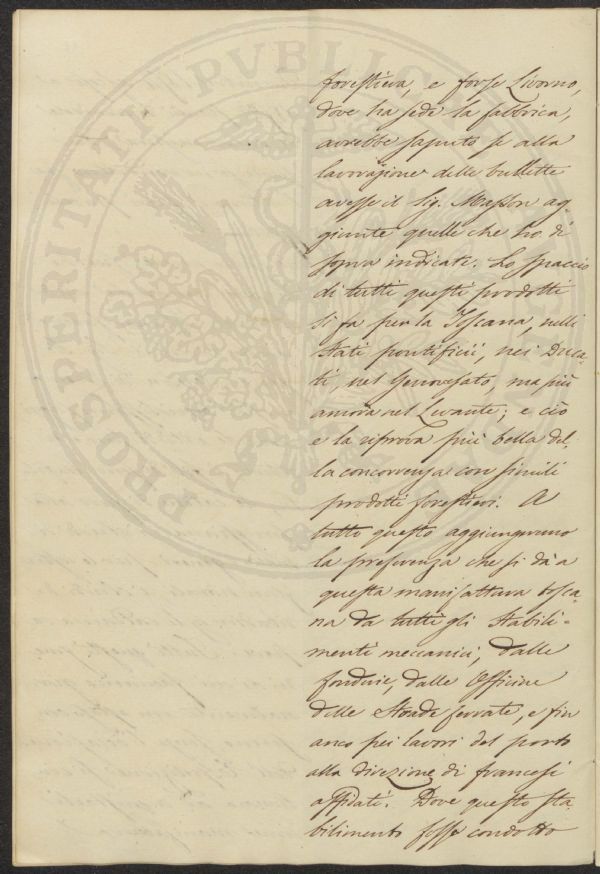 PROSPERITATI PUBLIC
forestiera, e forse Livorno,
dove ha sede la fabbrica,
avrebbe saputo se alla
lavorazione delle bullette
avesse il Sig. Masson ag-
giunte quelle che ho di
sopra indicate. Lo spaccio
di tutti questi prodotti
si fa per la Toscana, nelli
Stati pontificii, nei Duca-
ti, nel Genovesato, ma più
ancora nel Levante; e ciò
e la riprova più bella del-
la concorrenza con simili
prodotti forestieri. A
tutto questo aggiungeremo
la preferenza che si dà a
questa manifattura tosca-
na da tutti gli Stabili-
menti meccanici, dalle
fonderie, dalle Officine
delle Strade ferrate, e fin
anco pei lavori del porto
alla direzione di francesi
affidati. Dove questo sta-
bilimento fosse condotto